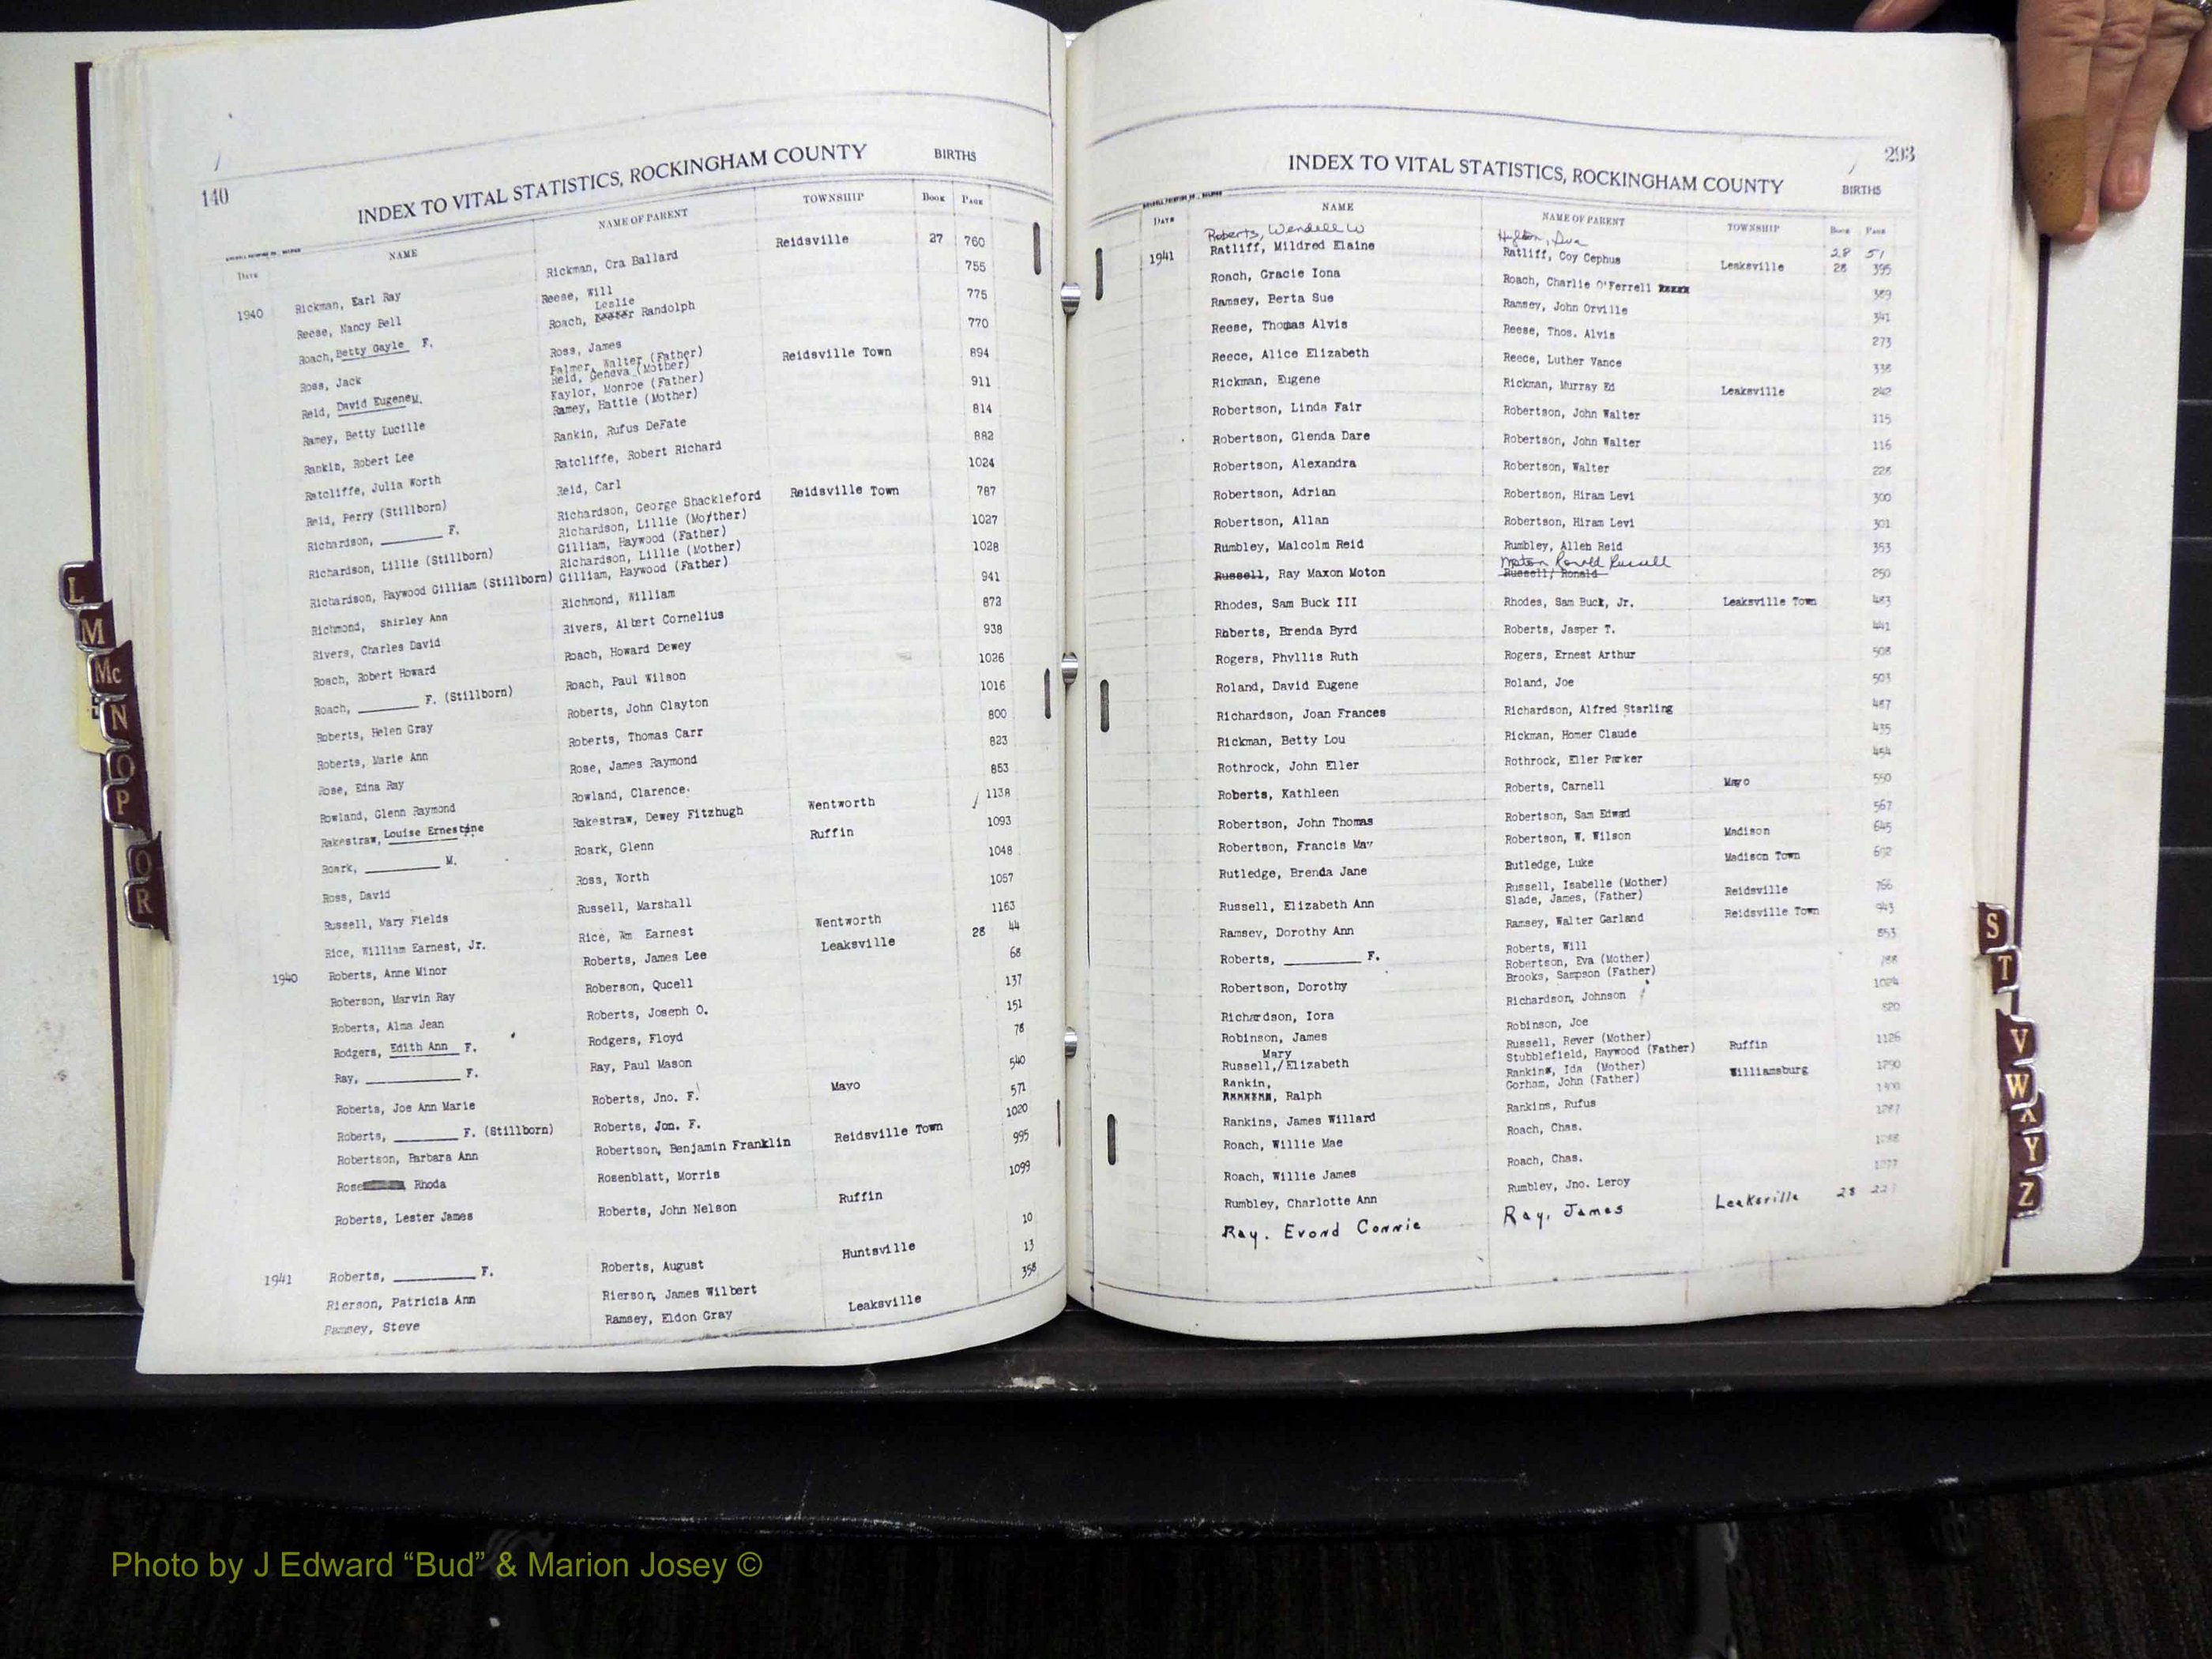 140
INDEX TO VITAL STATISTICS, ROCKINGHAM COUNTY BIRTHS
DATE NAME NAME OF PARENT TOWNSHIP BOOK PAGE
1940 Rickman, Earl Ray Rickman, Ora Ballard Reidsville 27 760
Reese, Nancy Bell Reese, Will 755
Leslie
Roach, Betty Gayle F. Roach, Randolph 775
Ross, Jack Ross, James 770
Palmer, Walter (Father)
Reid, David Eugene M. Reid, Geneva (Mother) Reidsville Town 894
Kaylor, Monroe (Father)
Ramey, Betty Lucille Ramey, Hattie (Mother) 911
Rankin, Robert Lee Rankin, Rufus DeFate 814
Ratcliffe, Julia Worth Ratcliffe, Robert Richard 882
Reid, Perry (Stillborn) Reid, Carl 1024
Richardson, ________ F. Richardson, George Shackleford Reidsville Town 787
Richardson, Lillie (Mother)
Richardson, Lillie (Stillborn) Gilliam, Haywood (Father) 1027
Richardson, Lillie (Mother)
Richardson, Haywood Gilliam (Stillborn) Gilliam, Haywood (Father) 1028
Richmond, Shirley Ann Richmond, William 941
Rivers, Charles David Rivers, Albert Cornelius 872
Roach, Robert Howard Roach, Howard Dewey 938
Roach, ________ F. (Stillborn) Roach, Paul Wilson 1026
Roberts, Helen Gray Roberts, John Clayton 1016
Roberts, Marie Ann Roberts, Thomas Carr 800
Rose, Edna Ray Rose, James Raymond 823
Rowland, Glenn Raymond Rowland, Clarence. 853
Rakestraw, Louise Ernestine F. Rakestraw, Dewey Fitzhugh Wentworth 1138
Roark, ________ M. Roark, Glenn Ruffin 1093
Ross, David Ross, Worth 1048
Russell, Mary Fields Russell, Marshall 1057
Rice, William Earnest, Jr. Rice, Wm Earnest Wentworth 1163
1940 Roberts, Anne Minor Roberts, James Lee Leaksville 28 44
Roberson, Marvin Ray Roberson, Qucell 68
Roberts, Alma Jean Roberts, Joseph O. 137
Rodgers, Edith Ann F. Rodgers, Floyd 151
Ray, ________ F. Ray, Paul Mason 78
Roberts, Joe Ann Marie Roberts, Jno. F. Mayo 540
Roberts, ________ F. (Stillborn) Roberts, Jon. F. 571
Robertson, Barbara Ann Robertson, Benjamin Franklin Reidsville Town 1020
Rose Rhoda Rosenblatt, Morris 995
Roberts, Lester James Roberts, John Nelson Ruffin 1099
1941 Roberts, ________ F. Roberts, August Huntsville 10
Rierson, Patricia Ann Rierson, James Wilbert 13
Ramsey, Steve Ramsey, Eldon Gray Leaksville 358
293
INDEX TO VITAL STATISTICS, ROCKINGHAM COUNTY BIRTHS
DATE NAME NAME OF PARENT TOWNSHIP BOOK PAGE
Roberts, Wendell W 28 51
1941 Ratliff, Mildred Elaine Ratliff, Coy Cephus Leaksville 28 395
Roach, Gracie Iona Roach, Charlie O'Ferrell 369
Ramsey, Perta Sue Ramsey, John Orville 341
Reese, Thomas Alvis Reese, Thos. Alvis 273
Reece, Alice Elizabeth Reece, Luther Vance 338
Rickman, Eugene Rickman, Murray Ed Leaksville 242
Robertson, Linda Fair Robertson, John Walter 115
Robertson, Glenda Dare Robertson, John Walter 116
Robertson, Alexandra Robertson, Walter 228
Robertson, Adrian Robertson, Hiram Levi 300
Robertson, Allan Robertson, Hiram Levi 301
Rumbley, Malcolm Reid Rumbley, Allen Reid 353
Moton Ronald Russell
Russell, Ray Maxon Moton Russell, Ronald 250
Rhodes, Sam Buck III Rhodes, Sam Buck, Jr. Leaksville Town 483
Roberts, Brenda Byrd Roberts, Jasper T. 441
Rogers, Phyllis Ruth Rogers, Ernest Arthur 508
Roland, David Eugene Roland, Joe 503
Richardson, Joan Frances Richardson, Alfred Starling 487
Rickman, Betty Lou Rickman, Homer Claude 435
Rothrock, John Eller Rothrock, Eller Parker 454
Roberts, Kathleen Roberts, Carnell Mayo 550
Robertson, John Thomas Robertson, Sam Edward 567
Robertson, Francis May Robertson, W. Wilson Madison 645
Rutledge, Brenda Jane Rutledge, Luke Madison Town 692
Russell, Isabelle (Mother)
Russell, Elizabeth Ann Slade, James, (Father) Reidsville 766
Ramsey, Dorothy Ann Ramsey, Walter Garland Reidsville Town 943
Roberts, ________ F. Roberts, Will 853
Robertson, Eva (Mother)
Robertson, Dorothy Brooks, Sampson (Father)
Richardson, Iora Richardson, Johnson 1024
Robinson, James Robinson, Joe 820
Mary Russell, Rever (Mother)
Russell,/Elizabeth Stubblefield, Haywood (Father) Ruffin 1126
Rankin, Rankins, Ida (Mother)
Ralph Gorham, John (Father) Williamsburg 1290
Rankins, James Willard Rankins, Rufus
Roach, Willie Mae Roach, Chas. 1287
Roach, Willie James Roach, Chas.
Rumbley, Charlotte Ann Rumbley, Jno. Leroy
Ray. Evond Connie Ray, James Leaksville 28
L
M
Mc
N
O
P
Q
R
S
T
V
W
X
Y
Z
Photo by J Edward “Bud” & Marion Josey ©